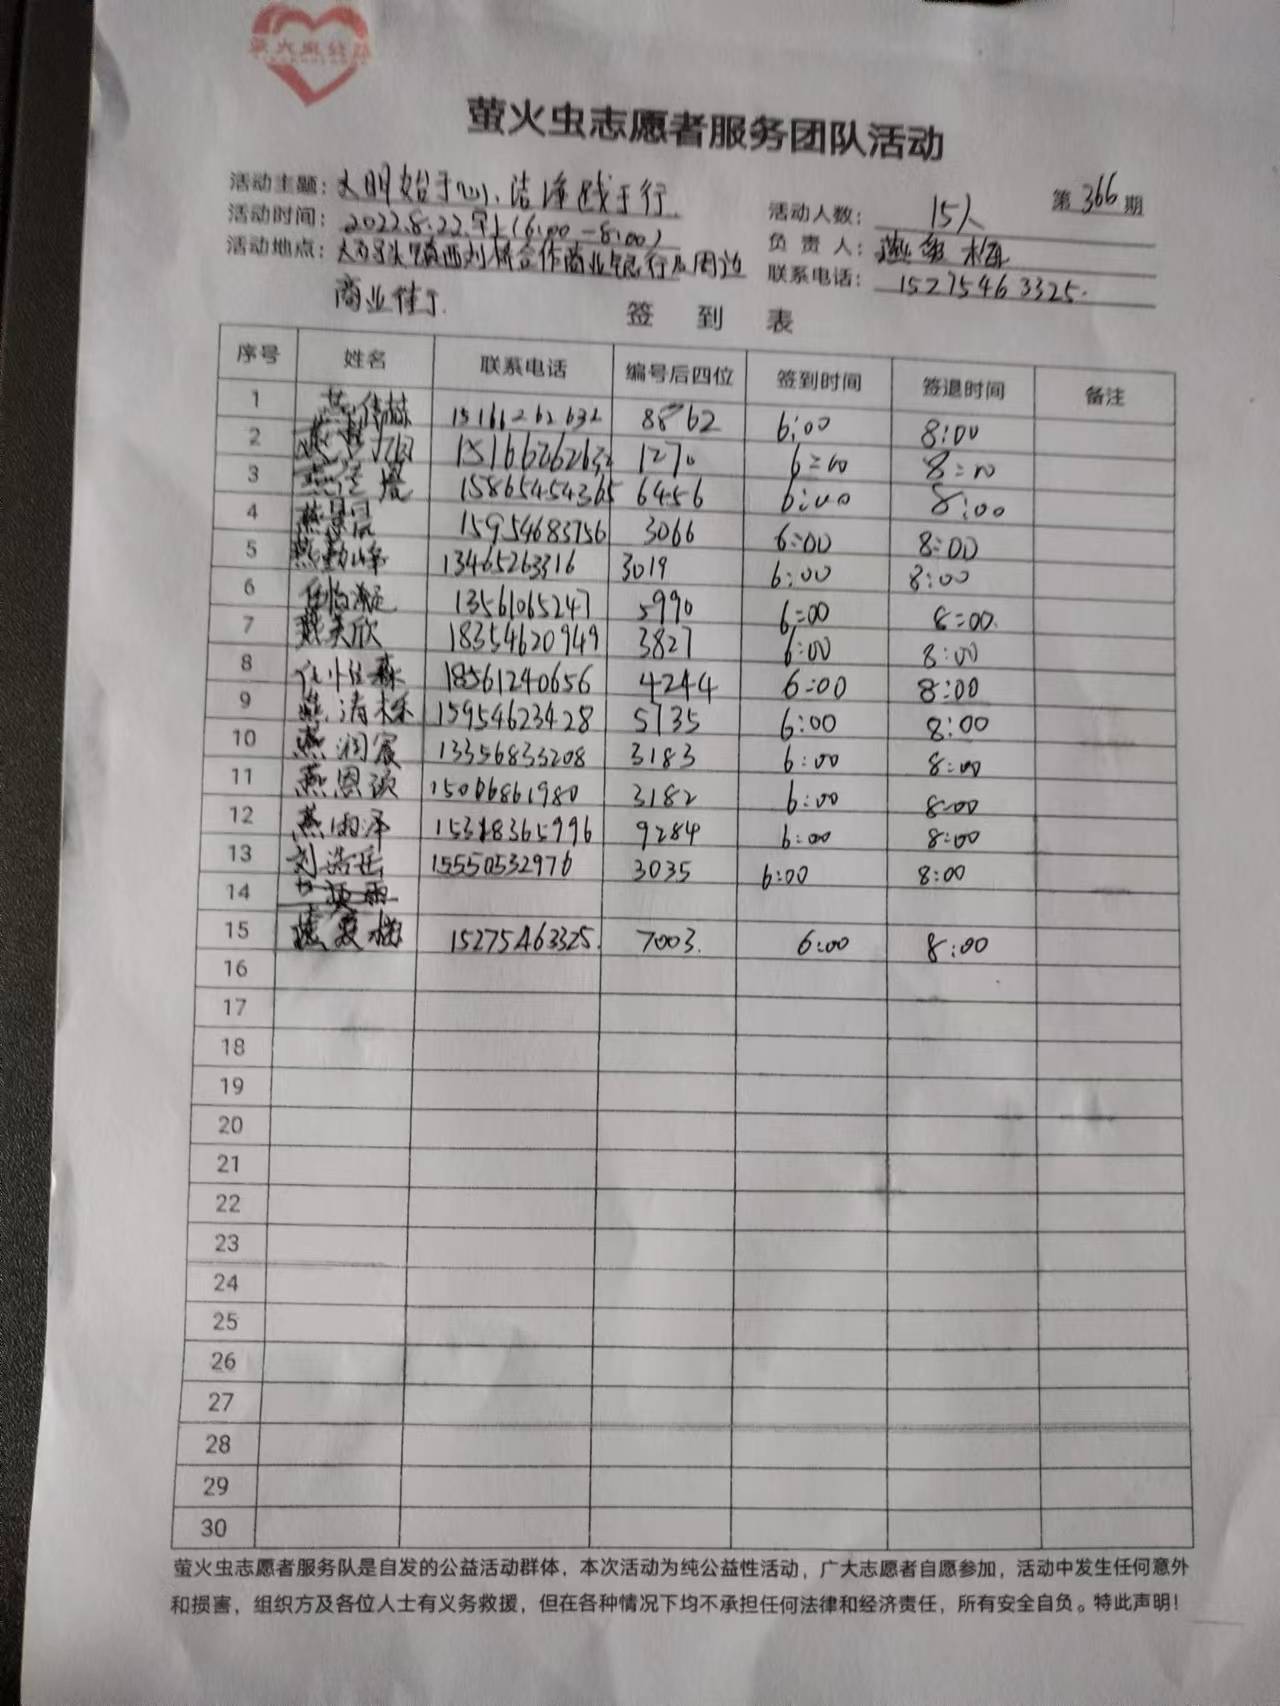 萤火虫志愿者服务团队活动
第366期
活动主题：文明始于心、洁净践于行
活动人数：15人
活动时间：2022.8.22.早上(6:00-8:00)
负责人：燕
活动地点：大码头镇西刘桥合作商业银行及周边
联系电话：15275463325.
商业街
签到表
序号 姓名 联系电话 编号后四位 签到时间 签退时间 备注
1 15161262632 8862 6:00 8:00
2 15166262632 1270 6:00 8:00
3 燕 15865454365 6456 6:00 8:00
4 燕 15954683756 3066 6:00 8:00
5 燕勤峰 13465263316 3019 6:00 8:00
6 任怡凝 13561065247 5990 6:00 8:00
7 燕美欣 18354620949 3827 6:00 8:00
8 森 18561240656 4244 6:00 8:00
9 燕清 15954623428 5735 6:00 8:00
10 燕润宸 13356833208 3183 6:00 8:00
11 燕恩 15006861980 3182 6:00 8:00
12 燕雨泽 15318365996 9284 6:00 8:00
13 刘浩 15550532976 3035 6:00 8:00
14
15 15275463325. 7003. 6:00 8:00
16
17
18
19
20
21
22
23
24
25
26
27
28
29
30
萤火虫志愿者服务队是自发的公益活动群体，本次活动为纯公益性活动，广大志愿者自愿参加，活动中发生任何意外
和损害，组织方及各位人士有义务救援，但在各种情况下均不承担任何法律和经济责任，所有安全自负。特此声明！